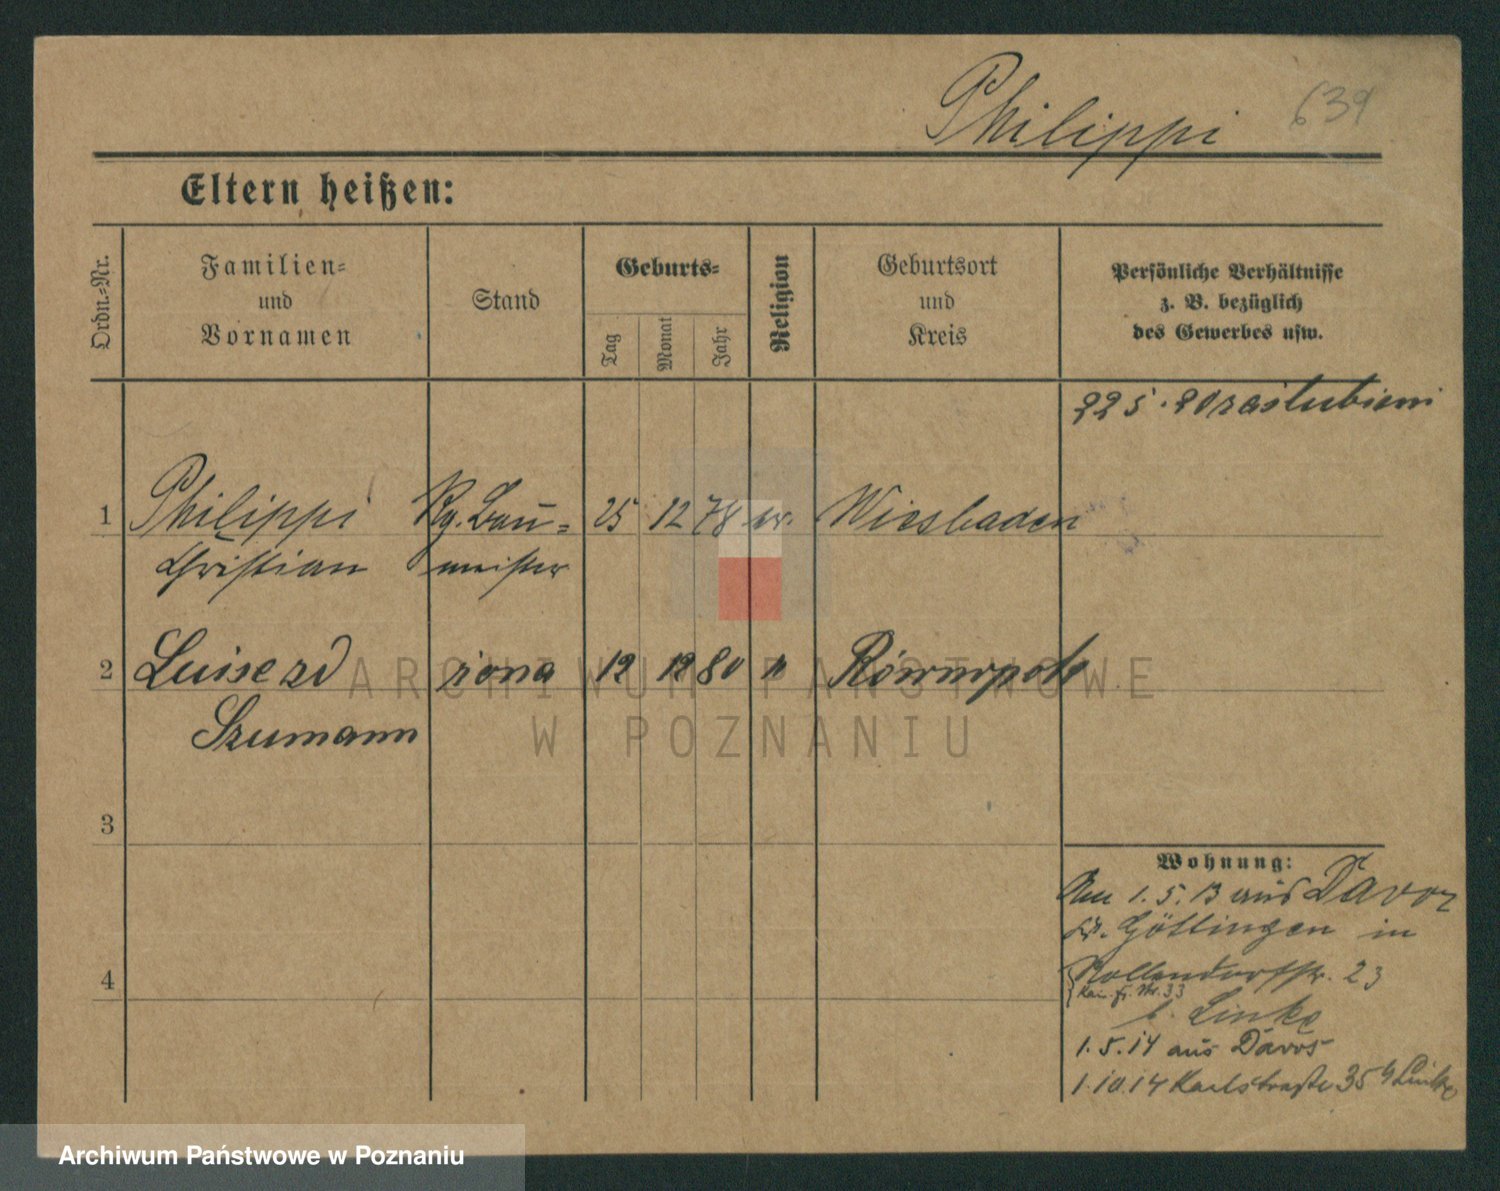 Philippi 639
Eltern heißen:
Ordn.-Nr.
Familien-
und
Vornamen
Stand
Geburts-
Tag
Monat
Jahr
Religion
Geburtsort
und
Kreis
Persönliche Verhältnisse
z. B. bezüglich
des Gewerbes usw.
1 Philippi Rg. Bau- 25 12 78 ev. Wiesbaden
Christian meister
2 Luise zd żona 12 12 80 "
Szumann
3
4
Wohnung:
Am 1. 5. 13 aus
Göttingen in
Nollendorfstr. 23
b. Linke
1.5.14 aus Davos
1.10.14 Karlstraße 35 b Linke
ARCHIWUM PAŃSTWOWE
W POZNANIU
Archiwum Państwowe w Poznaniu